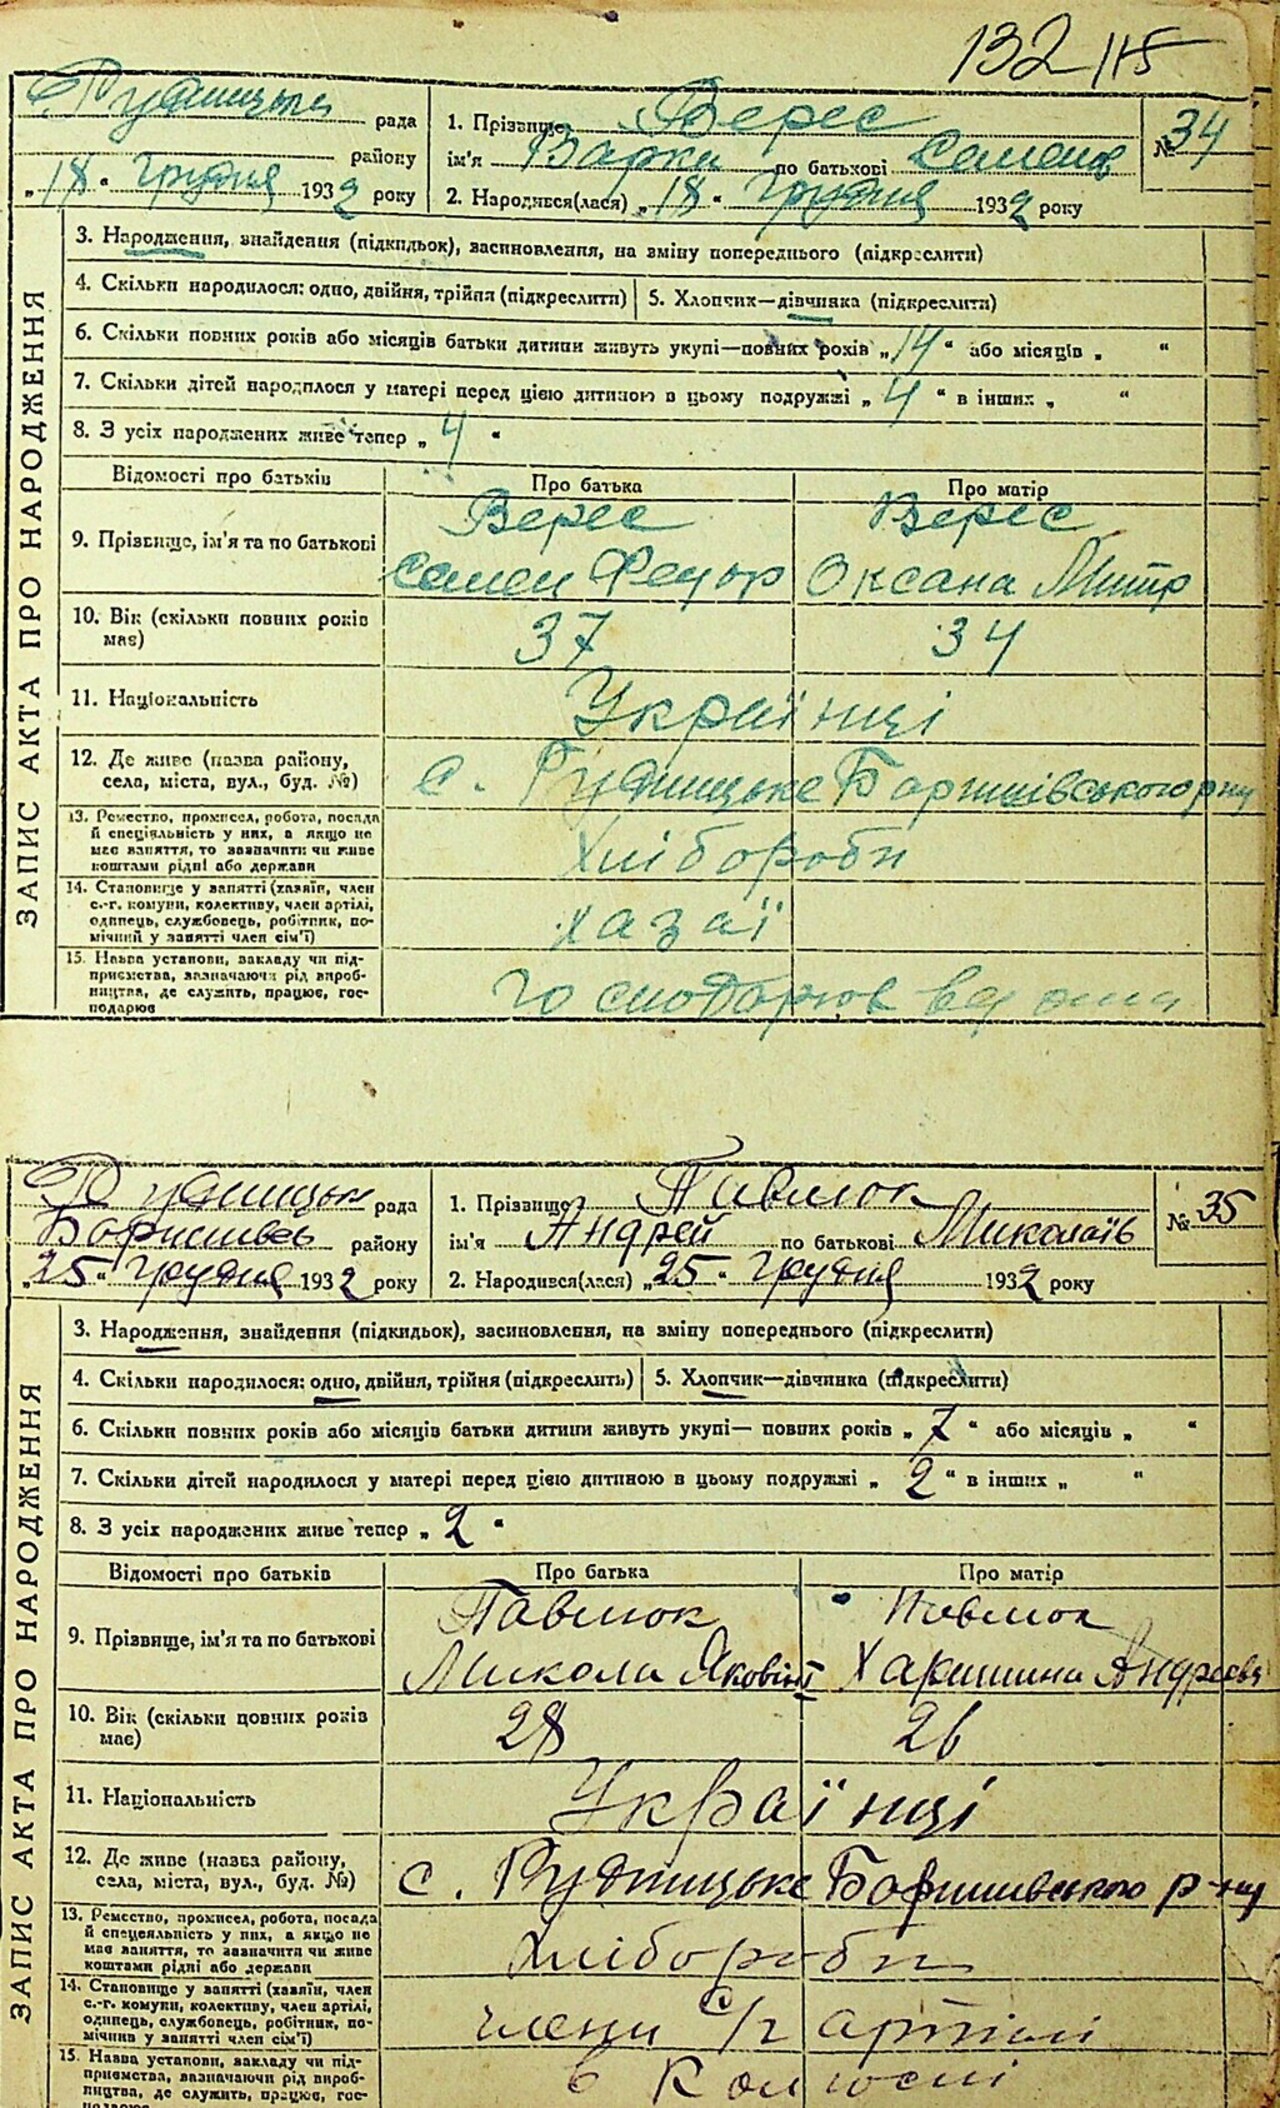 132 115
Рудницька рада
району
„18“ грудня 1932 року
1. Прізвище Верес
ім'я Варка по батькові Семенов
2. Народився(лася) „18“ грудня 1932 року
№ 34
ЗАПИС АКТА ПРО НАРОДЖЕННЯ
3. Народження, знайдення (підкидьок), засиновлення, на зміну попереднього (підкреслити)
4. Скільки народилося: одно, двійня, трійня (підкреслити)
5. Хлопчик—дівчинка (підкреслити)
6. Скільки повних років або місяців батьки дитини живуть укупі—повних років „14“ або місяців „ “
7. Скільки дітей народилося у матері перед цією дитиною в цьому подружжі „4“ в інших „ “
8. З усіх народжених живе тепер „4“
Відомості про батьків Про батька Про матір
9. Прізвище, ім'я та по батькові
Верес Верес
Семен Федор Оксана Митр
10. Вік (скільки повних років
має)
37 34
11. Національність Українці
12. Де живе (назва району,
села, міста, вул., буд. №)
с. Рудницьке Баришівського рну
13. Ремество, промисел, робота, посада
й спеціяльність у них, а якщо не
має заняття, то зазначити чи живе
коштами рідні або держави
Хлібороби
14. Становище у занятті (хазяїн, член
с.-г. комуни, колективу, член артілі,
одинець, службовець, робітник, по-
мічний у занятті член сім'ї)
хазаї
15. Назва установи, закладу чи під-
приємства, зазначаючи рід вироб-
ництва, де служить, працює, гос-
подарює
Рудницьк рада
Боришивсь району
„25“ грудня 1932 року
1. Прізвище Павлюк
ім'я Андрей по батькові Миколаїв
2. Народився(лася) „25“ грудня 1932 року
№ 35
ЗАПИС АКТА ПРО НАРОДЖЕННЯ
3. Народження, знайдення (підкидьок), засиновлення, на зміну попереднього (підкреслити)
4. Скільки народилося: одно, двійня, трійня (підкреслить)
5. Хлопчик—дівчинка (підкреслити)
6. Скільки повних років або місяців батьки дитини живуть укупі— повних років „7“ або місяців „ “
7. Скільки дітей народилося у матері перед цією дитиною в цьому подружжі „2“ в інших „ “
8. З усіх народжених живе тепер „2“
Відомості про батьків Про батька Про матір
9. Прізвище, ім'я та по батькові
Павлюк Павлюк
Микола Харитина Андреєвa
10. Вік (скільки повних років
має)
28 26
11. Національність Українці
12. Де живе (назва району,
села, міста, вул., буд. №)
с. Рудницьке Боришивського р-ну
13. Ремество, промисел, робота, посада
й спецеяльність у них, а якщо не
має заняття, то зазначити чи живе
коштами рідні або держави
Хлібороби
14. Становище у занятті (хазяїн, член
с.-г. комуни, колективу, член артілі,
одинець, службовець, робітник, по-
мічния у занятті член сім'ї)
члени с/г артілі
15. Назва установи, закладу чи під-
приємства, вазначаючи рід вироб-
ництва, де служить, працює, гос-
подарює
в